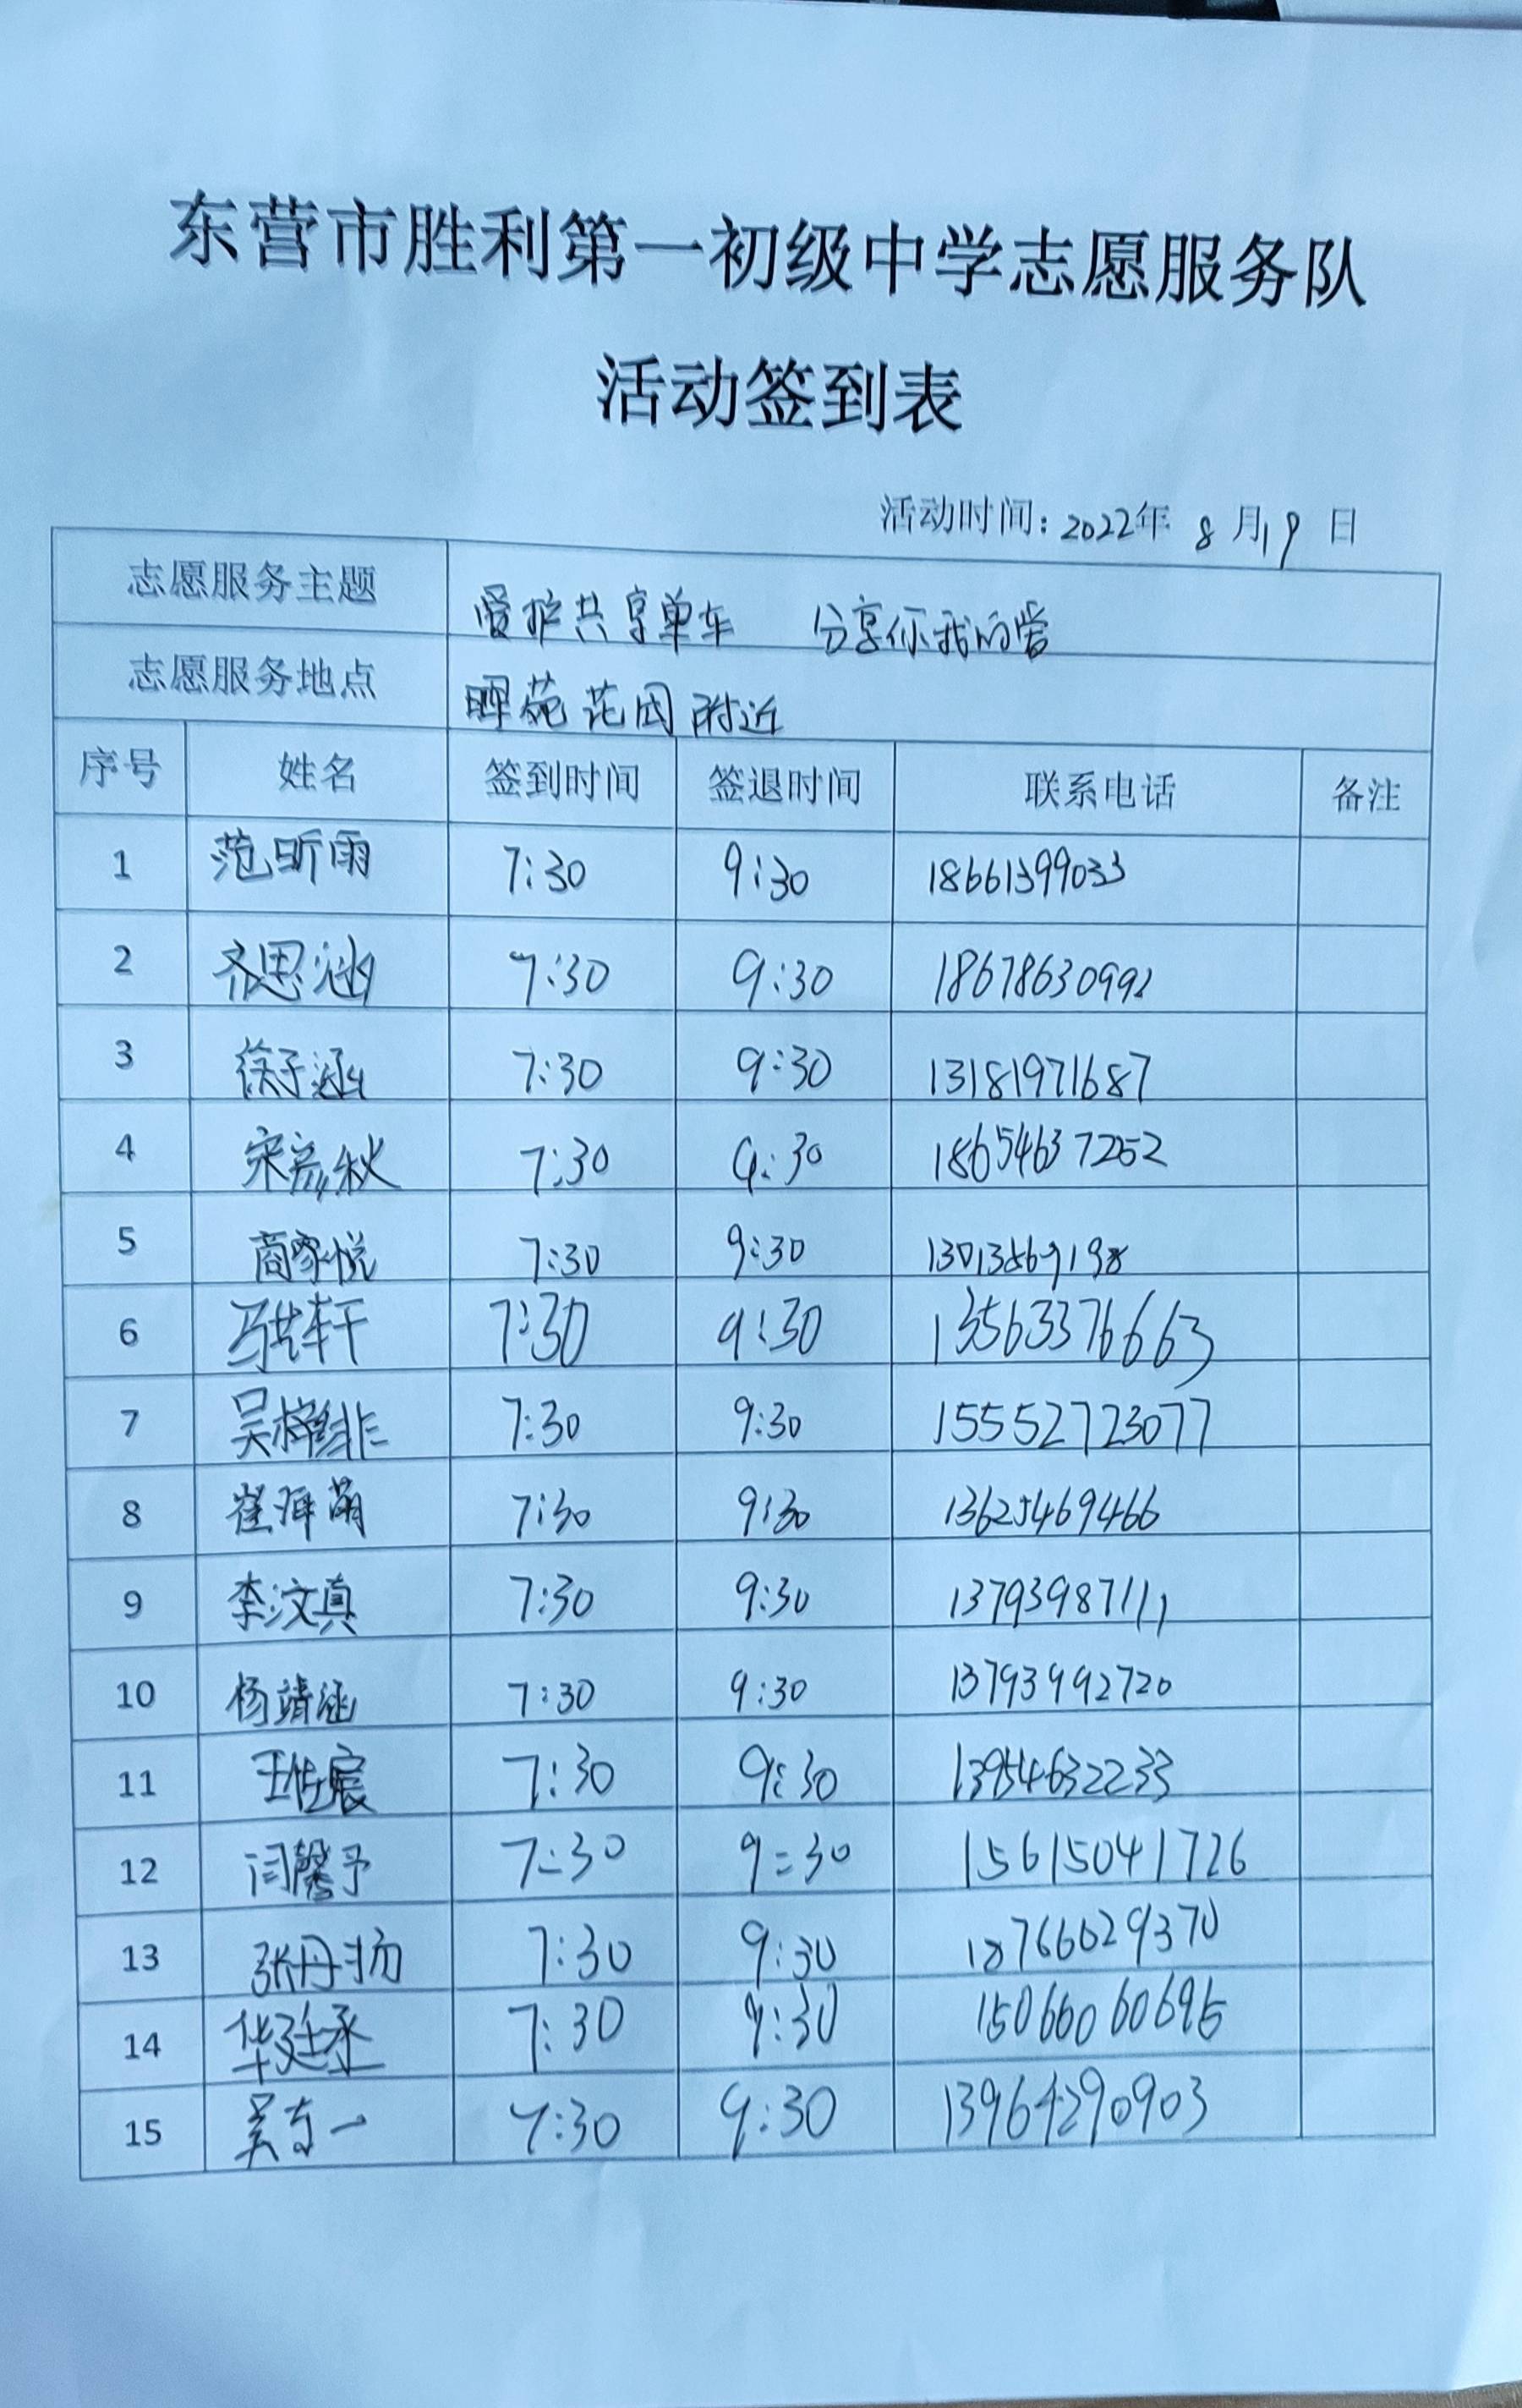 东营市胜利第一初级中学志愿服务队
活动签到表
活动时间：2022年 8 月19 日
志愿服务主题 爱护共享单车 分享你我的爱
志愿服务地点 晖苑花园附近
序号 姓名 签到时间 签退时间 联系电话 备注
1 范昕雨 7:30 9:30 18661399033
2 齐思涵 7:30 9:30 18678630992
3 徐子涵 7:30 9:30 13181971687
4 7:30 9:30 18654637252
5 商家悦 7:30 9:30
6 7:30 9:30 13563376663
7 7:30 9:30 15552723077
8 7:30 9:30 13625469466
9 李汶真 7:30 9:30 13793987111
10 杨靖涵 7:30 9:30 13793992720
11 7:30 9:30 13954632233
12 闫馨予 7:30 9:30 15615041726
13 张丹扬 7:30 9:30 18766629370
14 华廷丞 7:30 9:30
15 吴东一 7:30 9:30 13964290903